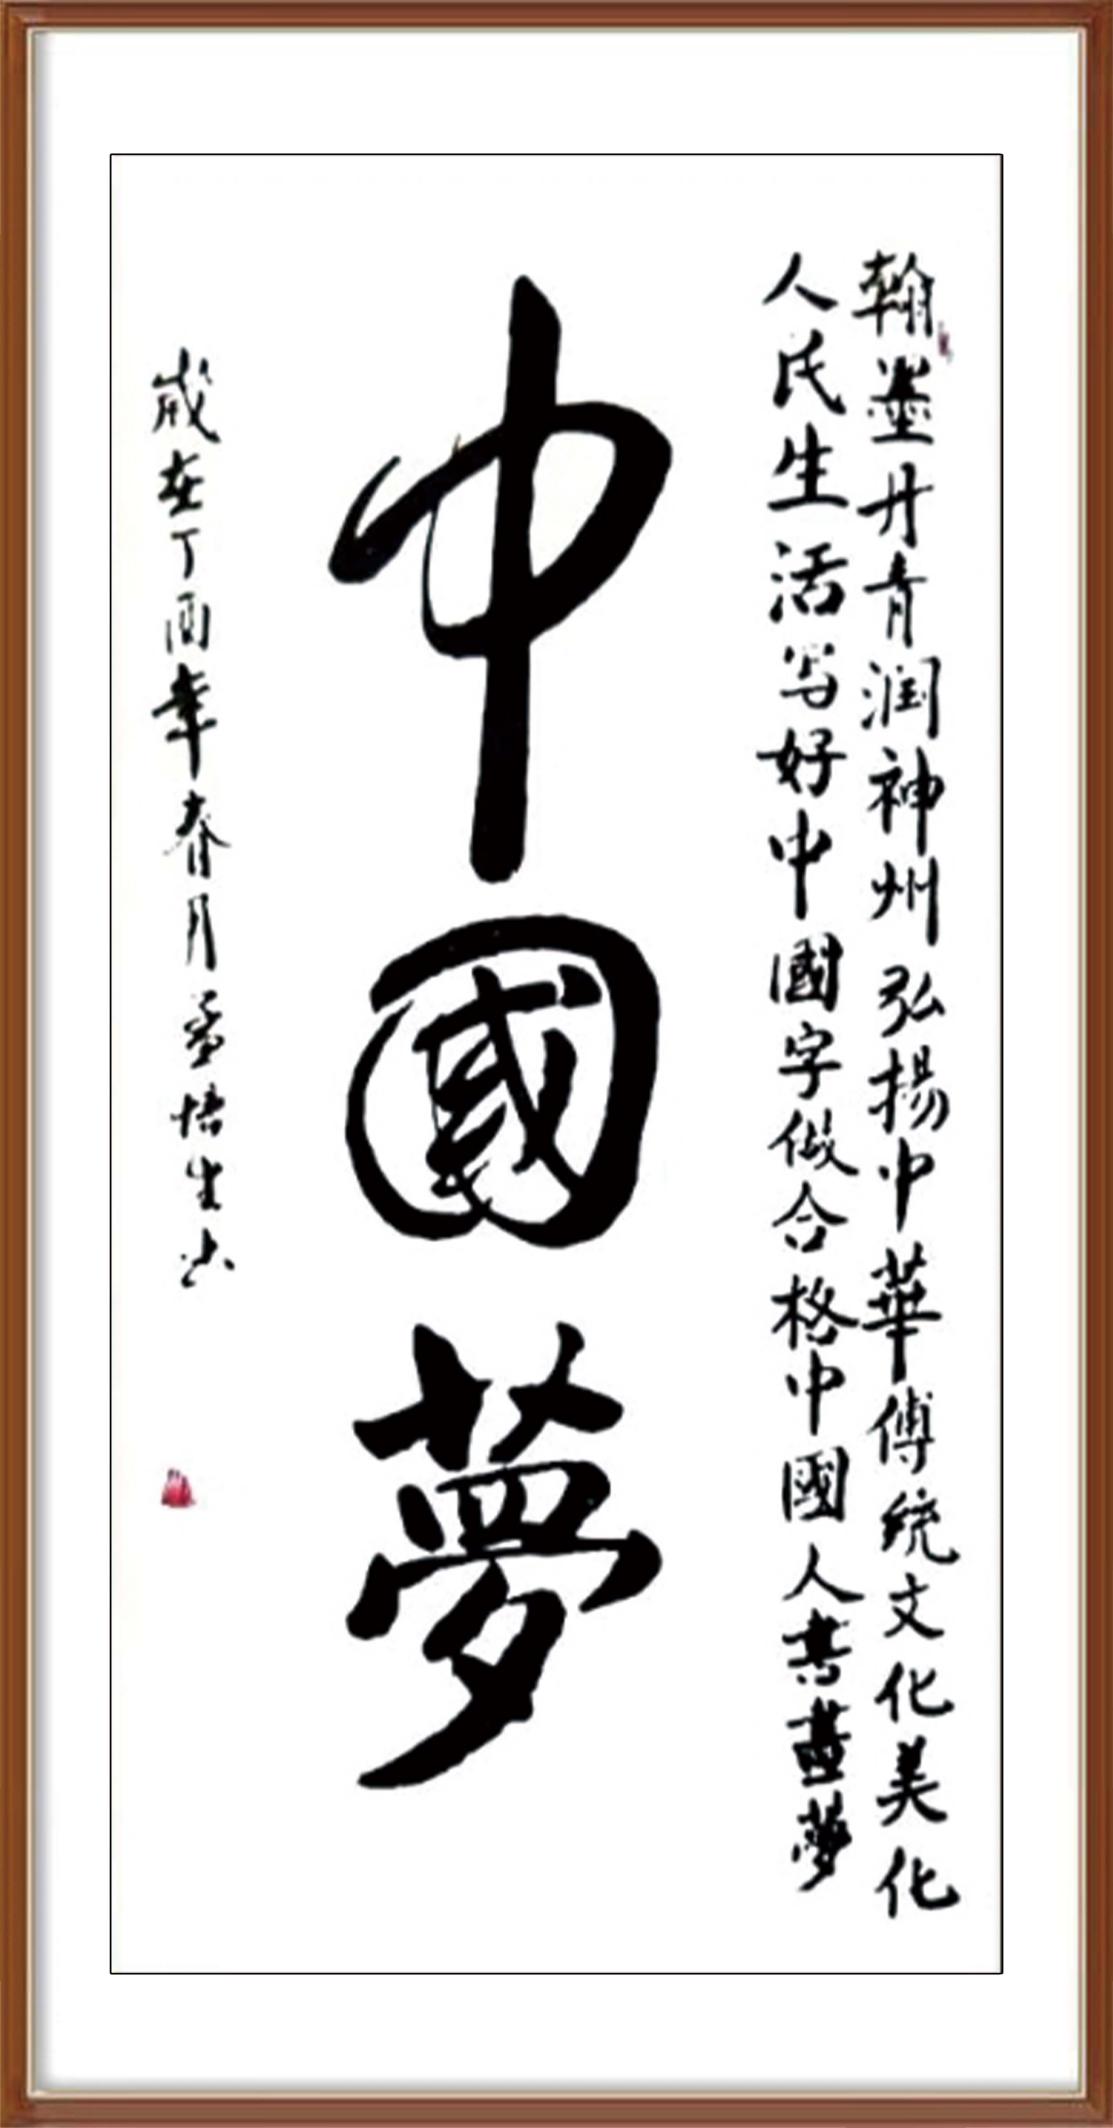 翰墨丹青润神州弘揚中華傳统文化美化
人民生活写好中國字做合格中國人書畫夢
中國夢
歲在丁酉年春月孟悟生书